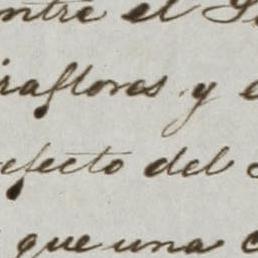 entre el
raflores y
efecto del
que una